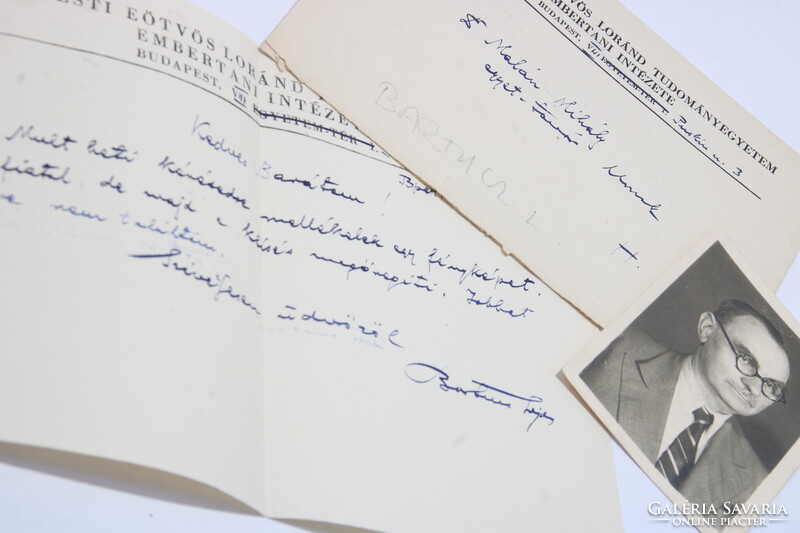 ESTI EÖTVÖS LORÁND
EMBERTANI INTÉZE
BUDAPEST, VIII EGYETEM-TÉR
Kedves Barátom!
Mult heti kérésedre mellékelek egy fényképet.
fiatal, de majd a képés megöregíti. Jobbat
nem találtam.
Szívélyesen üdvözöl
Bartucz Lajos
VÖS LORÁND TUDOMÁNYEGYETEM
EMBERTANI INTÉZETE
BUDAPEST, VIII EGYETEM-TÉR Puskin u. 3
Dr Malán Mihály
egyet. tanár
BARTUCZ L
GALÉRIA SAVARIA
ONLINE PIACTÉR